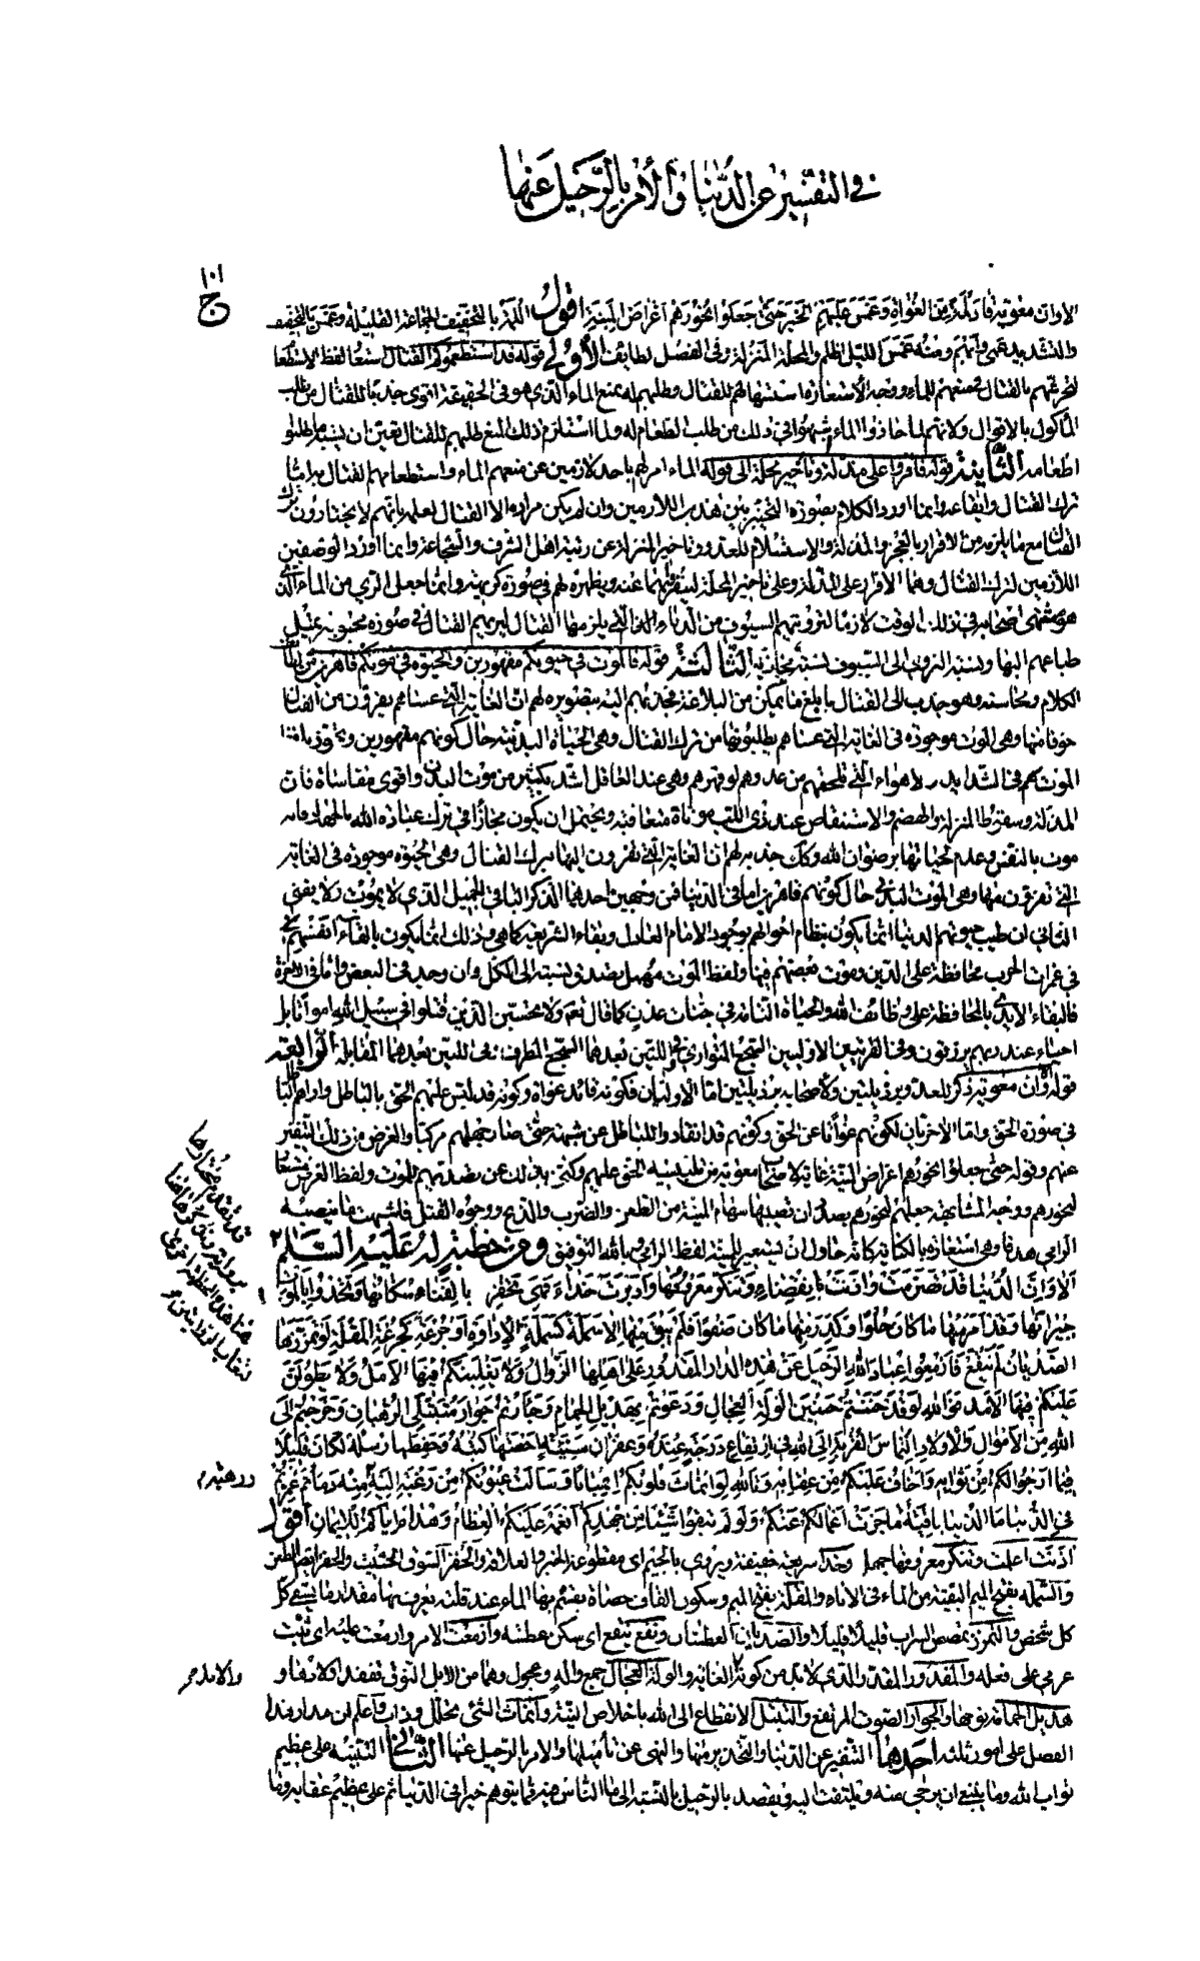 في التنفير عن الدنيا والأمر بالرحيل عنها
١٠١
ج
الا وان معوية قاد لمة من الغواة وعمس عليهم الخبر حتى جعلوا نحورهم اغراض المنية اقول اللمة بالتخفيف الجماعة القليلة وعمس بالتخفيف
والتشديد عمى وابهم ومنه عمس الليل اظلم والمحلة المنزلة وفي الفصل لطائف الاولى قوله قد استطعموكم القتال استعار لفظ الاستطعام
لتحرشهم بالقتال في منعهم للماء ووجه الاستعارة استسهالهم للقتال وطلبهم له بمنع الماء الذي هو في الحقيقة اقوى جذبا للقتال من طلب
المأكول بالاقوال ولانهم لما حازوا الماء اشبهوا في ذلك من طلب الطعام له ولما استلزم ذلك المنع طلبهم للقتال تعين ان يشبه ما طلبوا
اطعامه الثانية قوله فاقروا على مذلة وتأخير محلة الى قوله الماء امر لهم باحد لازمين عن منعهم الماء واستطعامهم القتال اما
ترك القتال وايقاعه وانما اورد الكلام بصورة التخيير بين هذين اللازمين وان لم يكن مراده الا القتال لعلمه بانهم لا يختارون ترك
القتال مع ما يلزمه من الاقرار بالعجز والمذلة والاستسلام للعدو وتأخير المنزلة عن رتبة اهل الشرف والشجاعة وانما اورد الوصفين
اللازمين لترك القتال وهما الاقرار على المذلة وعلى تأخير المحلة لينفرهم عنه ويظهره لهم في صورة كريهة وانما جعل الري من الماء الذي
هو مشتهى اصحابه في ذلك الوقت لازما لترويتهم السيوف من الدماء التي يلزمها القتال ليريهم القتال في صورة محبوبة تميل
طباعهم اليها ونسبة التروي الى السيوف نسبة مجازية الثالثة قوله فالموت في حيوتكم مقهورين والحيوة في موتكم قاهرين من لطائف
الكلام ومحاسنه وهو جذب الى القتال بابلغ ما يمكن من البلاغة فجذبهم اليه بتصويره لهم ان الغاية التي عساهم يفرون من القتال
خوفا منها وهي الموت موجودة في الغاية التي عساهم يطلبونها من ترك القتال وهي الحياة البدنية حال كونهم مقهورين وتجوز بلفظ
الموت في الشدائد والاهوال التي تلحقهم من عدوهم لو قهرهم وهي عند العاقل اشد بكثير من موت البدن واقوى مقاساة فان
المذلة وسقوط المنزلة والهضم والاستنقاص عند ذي اللب موتات متعاقبة ويحتمل ان يكون مجازا في ترك عبادة الله بالجهاد فانه
موت للنفس وعدم لحياتها برضوان الله وكذلك جذبه لهم ان الغاية التي تفرون اليها بترك القتال وهي الحيوة موجودة في الغاية
التي تفرون منها وهي الموت البدني حال كونهم قاهرين اما في الدنيا فمن وجهين احدهما الذكر الباقي الجميل الذي لا يموت ولا يفنى
الثاني ان طيب حيوتهم الدنيا انما يكون بنظام احوالهم بوجود الامام العادل وبقاء الشريعة كما هي وذلك انما يكون بالقاء انفسهم
في غمرات الحرب محافظة على الدين وموت بعضهم فيها ولفظ الموت مهمل يصدق نسبته الى الكل وان وجد في البعض واما في الاخرة
فالبقاء الابدي بالمحافظة على وظائف الله والحياة التامة في جنات عدن كما قال تعالى ولا تحسبن الذين قتلوا في سبيل الله امواتا بل
احياء عند ربهم يرزقون وفي القرينتين الاوليين السجع المتوازي وفي اللتين بعدهما السجع المطرف وفي اللتين بعدهما المقابلة الرابعة
قوله الا وان معوية ذكر للعدو برذيلتين ولاصحابه برذيلتين اما الاوليان فكونه قائد غواة وكونه قد لبس عليهم الحق بالباطل واراهم الباطل
في صورة الحق واما الاخريان لكونهم عوانا عن الحق وكونهم قد انقادوا للباطل عن شبهة حتى صار جهلهم مركبا والغرض من ذلك التنفير
عنهم وقوله حتى جعلوا نحورهم اغراض المنية غاية لاصحاب معوية من تلبيسه الحق عليهم وكنى بذلك عن تصديهم للموت ولفظ الغرض مستعار
لنحورهم ووجه المشابهة جعلهم لنحورهم بصدد ان تصيبها سهام المنية من الطعن والضرب والذبح ووجوه القتل فاشبهت ما ينصبه
الرامي هدفا وهي استعارة بالكناية كانه حاول ان يستعير للمنية لفظ الرامي وبالله التوفيق ومن خطبة له عليه السلام
الا وان الدنيا قد تصرمت واذنت بانقضاء وتنكر معروفها وادبرت حذاء فهي تحفز بالفناء سكانها وتحدو بالموت
جيرانها وقد امر منها ما كان حلوا وكدر منها ما كان صفوا فلم يبق منها الا سملة كسملة الاداوة او جرعة كجرعة المقلة لو تمززها
الصديان لم ينقع فازمعوا عباد الله الرحيل عن هذه الدار المقدور على اهلها الزوال ولا يغلبنكم فيها الامل ولا يطولن
عليكم فيها الامد فوالله لو حننتم حنين الوله العجال ودعوتم بهديل الحمام وجأرتم جؤار متبتلي الرهبان وخرجتم الى
الله من الاموال والاولاد التماس القربة الى الله في ارتفاع درجة عنده وغفران سيئة احصتها كتبه وحفظها رسله لكان قليلا
فيما ارجو لكم من ثوابه واخاف عليكم من عقابه وتالله لو انماثت قلوبكم انمياثا وسالت عيونكم من رغبة اليه منه دما ثم عمرتم
في الدنيا ما الدنيا باقية ما جزت اعمالكم عنكم ولو لم تبقوا شيئا من جهدكم انعمه عليكم العظام وهداه اياكم للايمان اقول
اذنت اعلمت وتنكر معروفها جهل وحذاء سريعة خفيفة ويروى بالجيم اي مقطوعة الخير والعلاقة والحفز السوق الحثيث والحفز ايضا الطعن
والسملة بفتح الميم البقية من الماء في الاناء والمقلة بفتح الميم وسكون القاف حصاة يقسم بها الماء عند قلته يعرف بها مقدار ما يسقى كل
كل شخص والتمزز تمصص الشراب قليلا قليلا والصديان العطشان ونقع ينقع اي سكن عطشه وازمعت الامر وازمعت عليه اي ثبت
عزمي على فعله والمقدور المقدر الذي لا بد من كونه والامد الغاية والوله العجال جمع واله وعجول وهما من الابل النوق تفقد اولادها و
هديل الحمامة نوحها والجؤار الصوت المرتفع والتبتل الانقطاع الى الله باخلاص النية وانماث الشيء تحلل وذاب واعلم ان مدار هذا
الفصل على امور ثلثة احدها التنفير عن الدنيا والتحذير منها والنهي عن تأميلها والامر بالرحيل عنها الثاني التنبيه على عظيم
ثواب الله وما ينبغي ان يرجى منه ويلتفت اليه ويقصد بالرحيل بالنسبة الى ما الناس فيه مما يتوهم خيرا في الدنيا ثم على عظيم عقابه وما
قد تقدم مختارها
برواية ونذكرها هنا
هنا هذه الخطبة برواية اخرى
لتغاير الروايتين
ورهبة م
والامد م